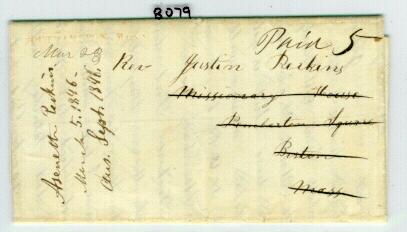 8079
Mar 23
Paid 5
Rev Justin Perkins
Missionary House
Pemberton Square
Boston
Mass
Aseneth Perkins
March 5. 1846.
Ans. Sept. 1846.